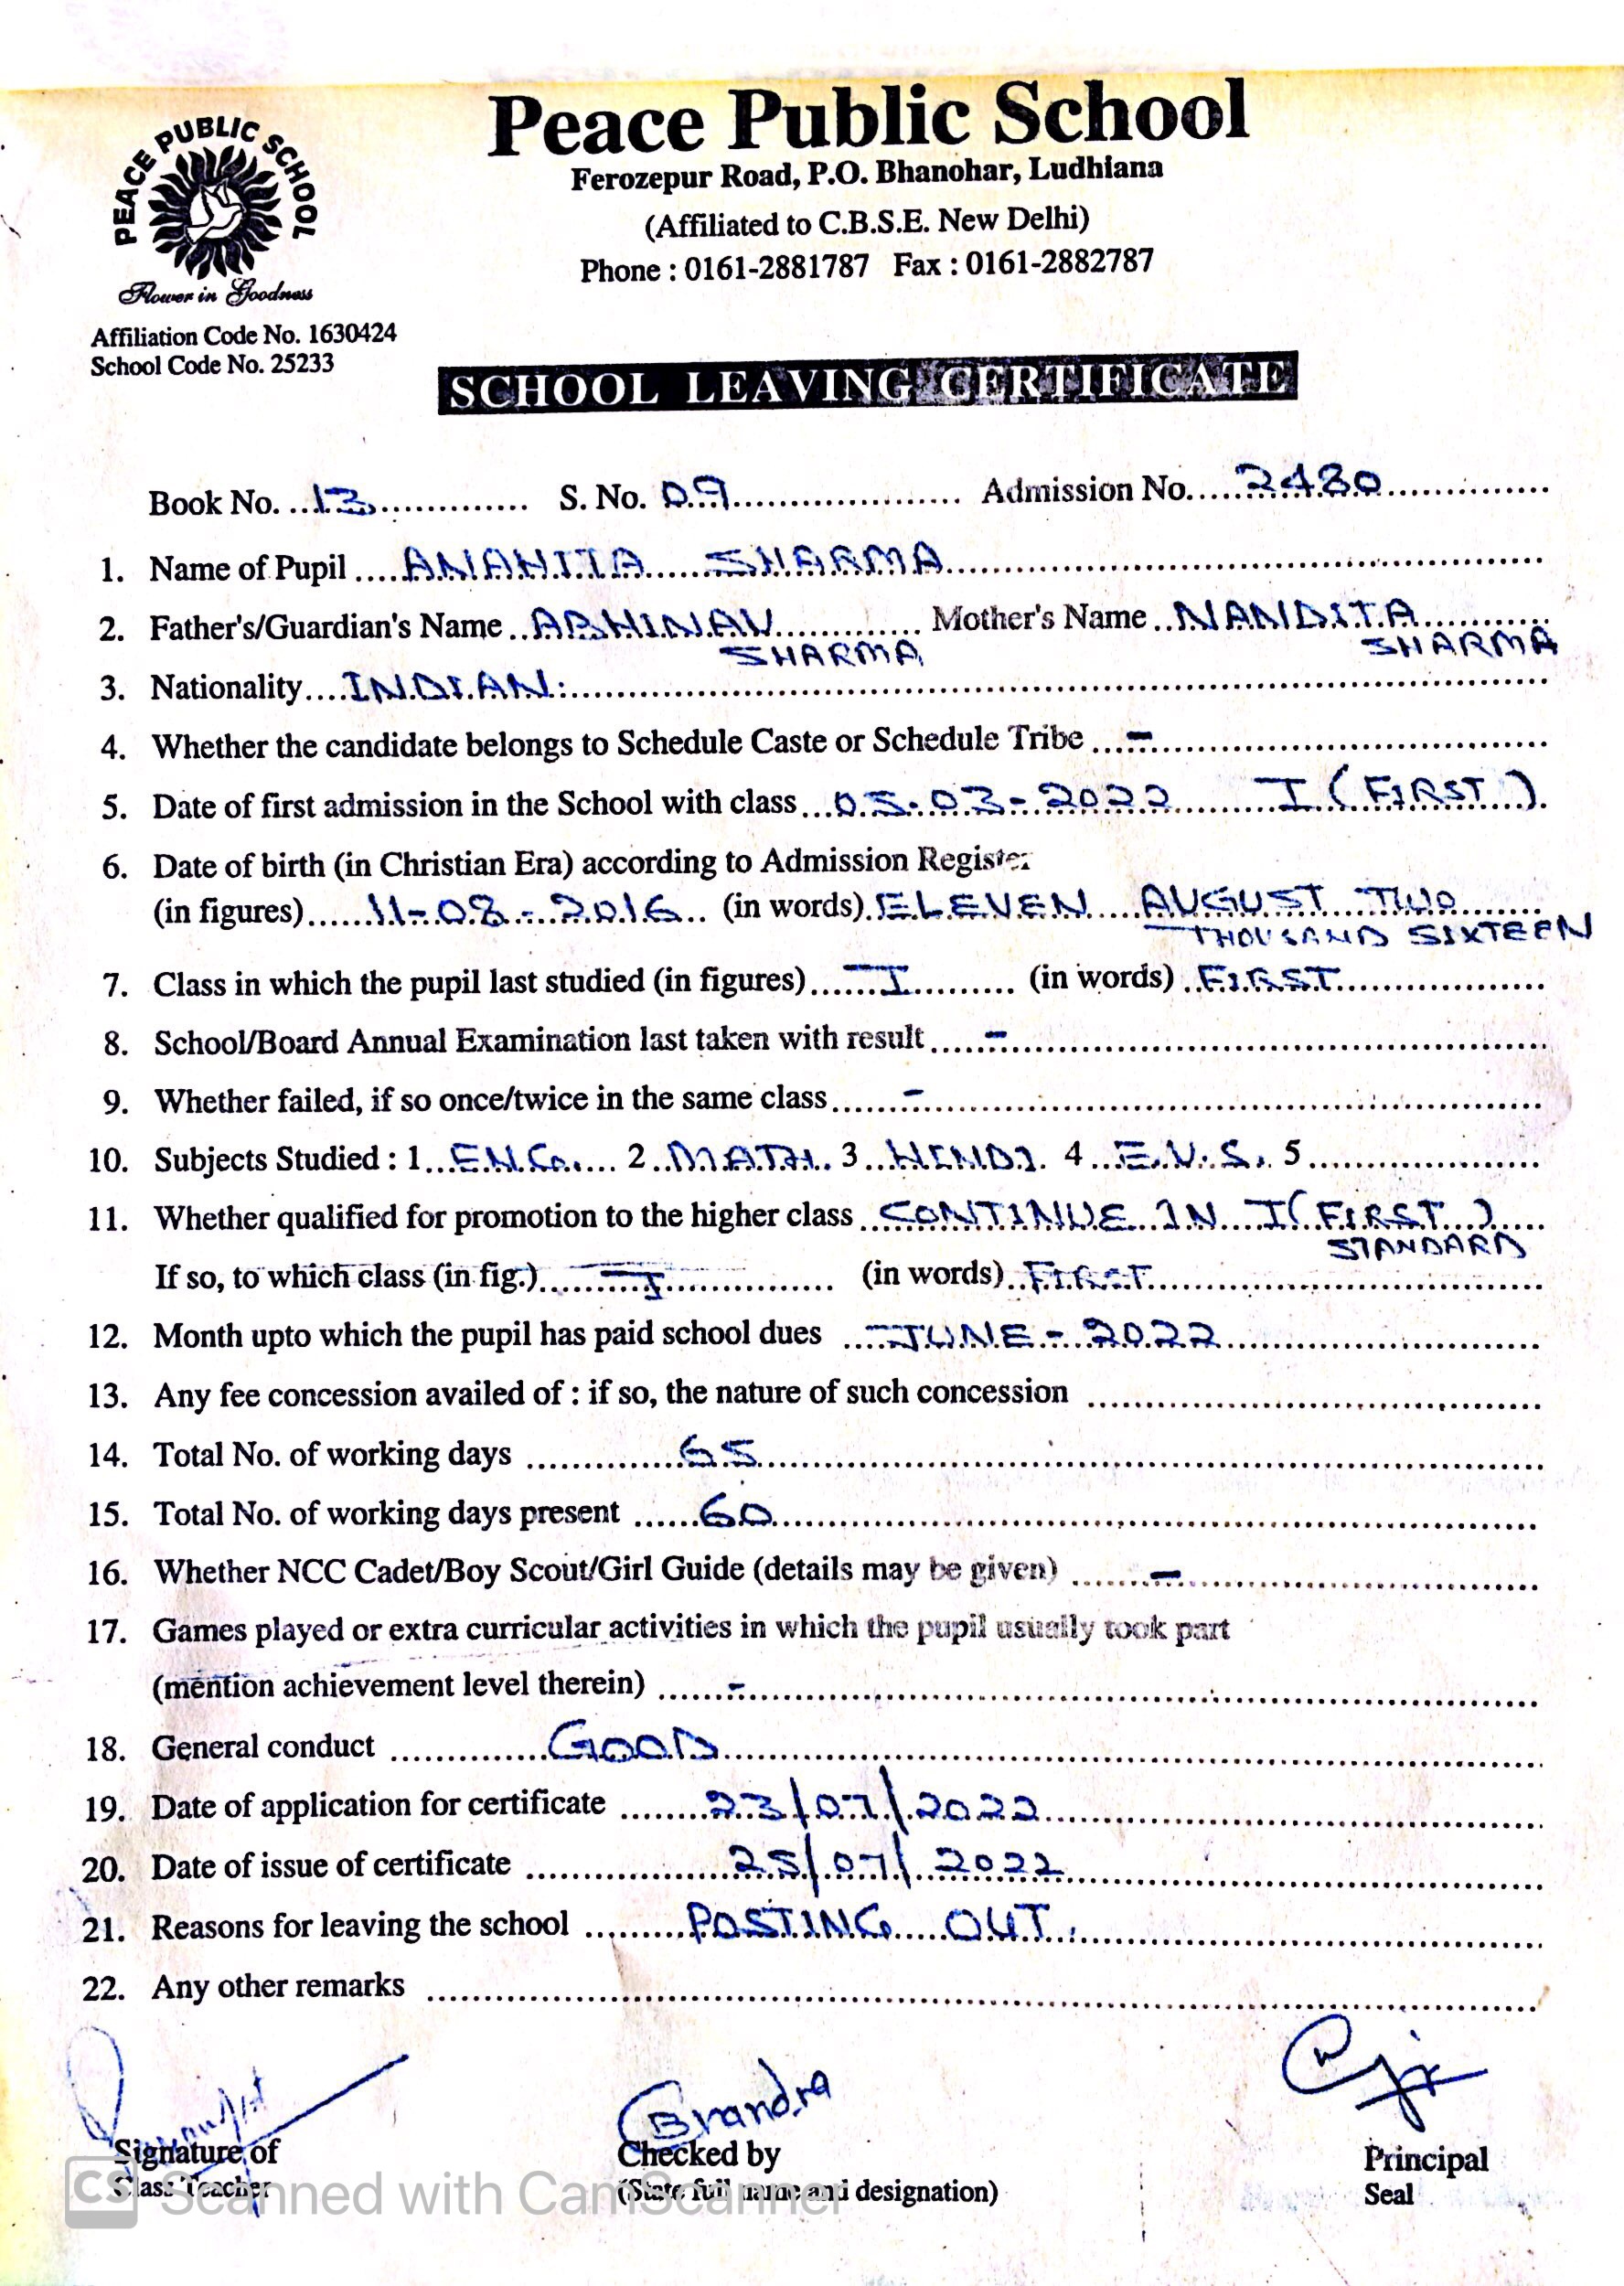 Peace Public School
Ferozepur Road, P.O. Bhanohar, Ludhiana
(Affiliated to C.B.S.E. New Delhi)
Phone : 0161-2881787 Fax : 0161-2882787
PEACE PUBLIC SCHOOL
Flower in Goodness
Affiliation Code No. 1630424
School Code No. 25233
SCHOOL LEAVING CERTIFICATE
Book No. 13 S. No. 09 Admission No. 2480
1. Name of Pupil ANAHITA SHARMA
2. Father's/Guardian's Name ABHINAV SHARMA Mother's Name NANDITA SHARMA
3. Nationality INDIAN
4. Whether the candidate belongs to Schedule Caste or Schedule Tribe -
5. Date of first admission in the School with class 05-03-2022 I (FIRST)
6. Date of birth (in Christian Era) according to Admission Register
(in figures) 11-08-2016 (in words) ELEVEN AUGUST TWO
THOUSAND SIXTEEN
7. Class in which the pupil last studied (in figures) I (in words) FIRST
8. School/Board Annual Examination last taken with result -
9. Whether failed, if so once/twice in the same class -
10. Subjects Studied : 1 ENG. 2 MATH. 3 HINDI. 4 E.V.S. 5
11. Whether qualified for promotion to the higher class CONTINUE IN I (FIRST)
STANDARD
If so, to which class (in fig.) I (in words) FIRST
12. Month upto which the pupil has paid school dues JUNE - 2022
13. Any fee concession availed of : if so, the nature of such concession
14. Total No. of working days 65
15. Total No. of working days present 60
16. Whether NCC Cadet/Boy Scout/Girl Guide (details may be given) -
17. Games played or extra curricular activities in which the pupil usually took part
(mention achievement level therein) -
18. General conduct GOOD
19. Date of application for certificate 23/07/2022
20. Date of issue of certificate 25/07/2022
21. Reasons for leaving the school POSTING OUT.
22. Any other remarks
Signature of Checked by Principal
Class Teacher (State full name and designation) Seal
CS Scanned with CamScanner